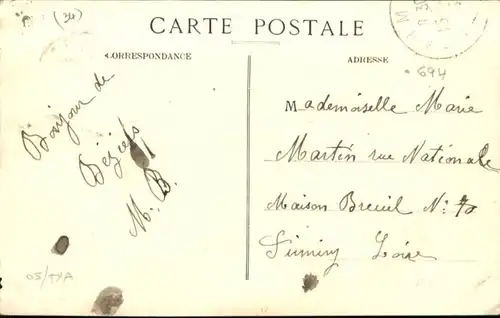 (34)
CARTE POSTALE
CORRESPONDANCE
ADRESSE
694
Bonjour de
Béziers
M. B.
Mademoiselle Marie
Martin rue Nationale
Maison Breuil N:
Firminy Loire